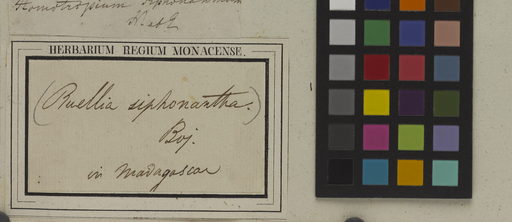 H et Z
HERBARIUM REGIUM MONACENSE.
(Ruellia siphonantha.)
Boj.
in Madagascar